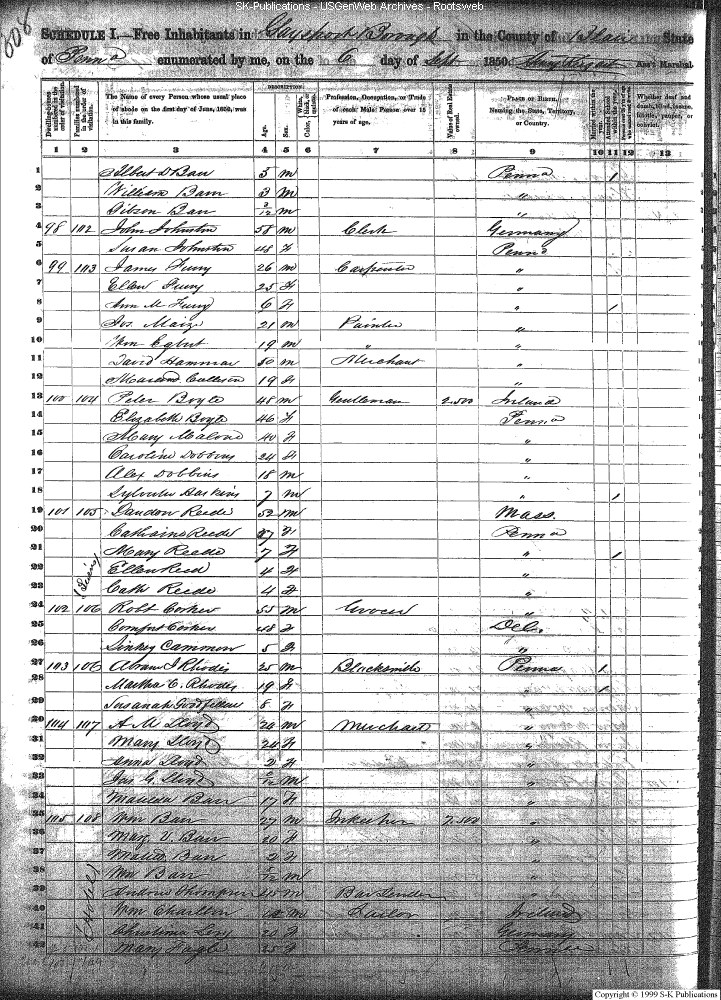 SK-Publications - USGenWeb Archives - Rootsweb
808
SCHEDULE I.—Free Inhabitants in Gaysport Borough in the County of Blair State
of Penna enumerated by me, on the 6 day of Sept 1850. Ass't Marshal.
DESCRIPTION.
Dwelling-houses numbered in the order of visitation.
Families numbered in the order of visitation.
The Name of every Person whose usual place of abode on the first day of June, 1850, was in this family.
Age.
Sex.
Color, White, black, or mulatto.
Profession, Occupation, or Trade of each Male Person over 15 years of age.
Value of Real Estate owned.
PLACE OF BIRTH. Naming the State, Territory, or Country.
Married within the year.
Attended School within the year.
Whether deaf and dumb, blind, insane, idiotic, pauper, or convict.
1 2 3 4 5 6 7 8 9 10 11 12 13
1 Albert D Barr 5 m Penna 1
2 William Barr 3 m "
3 Gibson Barr 2/12 m "
4 98 102 John Johnston 58 m Clerk Germany
5 Susan Johnston 48 f Penna
6 99 103 James Furry 26 m Carpenter "
7 Ellen Furry 25 f "
8 Ann M Furry 6 f " 1
9 Jos. Maize 21 m Painter "
10 Wm Egbert 19 m " "
11 David Hammar 50 m Merchant "
12 19 f "
13 100 104 Peter Boyle 48 m Gentleman 2.500 Ireland
14 Elizabeth Boyle 46 f Penna
15 Mary Malone 40 f "
16 Caroline Dobbins 24 f "
17 Alex Dobbins 18 m "
18 Sylvester Haskins 7 m " 1
19 101 105 Reede 52 m Mass.
20 Catharine Reede 37 f Penna
21 Mary Reede 7 f " 1
22 Ellen Reed 4 f "
23 Cath Reede 4 f "
24 102 106 Robt Corker 55 m Grocer "
25 Comfort Corker 48 f Del.
26 Sinkey Cammon 5 f "
27 103 106 Abram J Rhodes 25 m Blacksmith Penna 1
28 Martha C. Rhodes 19 f " 1
29 Susanah Goodfellow 8 f "
30 104 107 A M Lloyd 26 m Merchant "
31 Mary Lloyd 24 f "
32 Anna Lloyd 2 f "
33 Jas G. Lloyd m "
34 Matilda Barr 17 f "
35 105 108 Wm Barr 27 m Inkeeper 7.500 "
36 Marg V. Barr 20 f "
37 Barr 2 f "
38 Wm Barr m "
39 Thompson m Bar Tender "
40 Wm Charlton m Tailor Ireland
41 Christiana Levy 20 f Germany
42 Mary Nagle 25 f Penna
(Twins)
(Hotel)
Copyright © 1999 S-K Publications